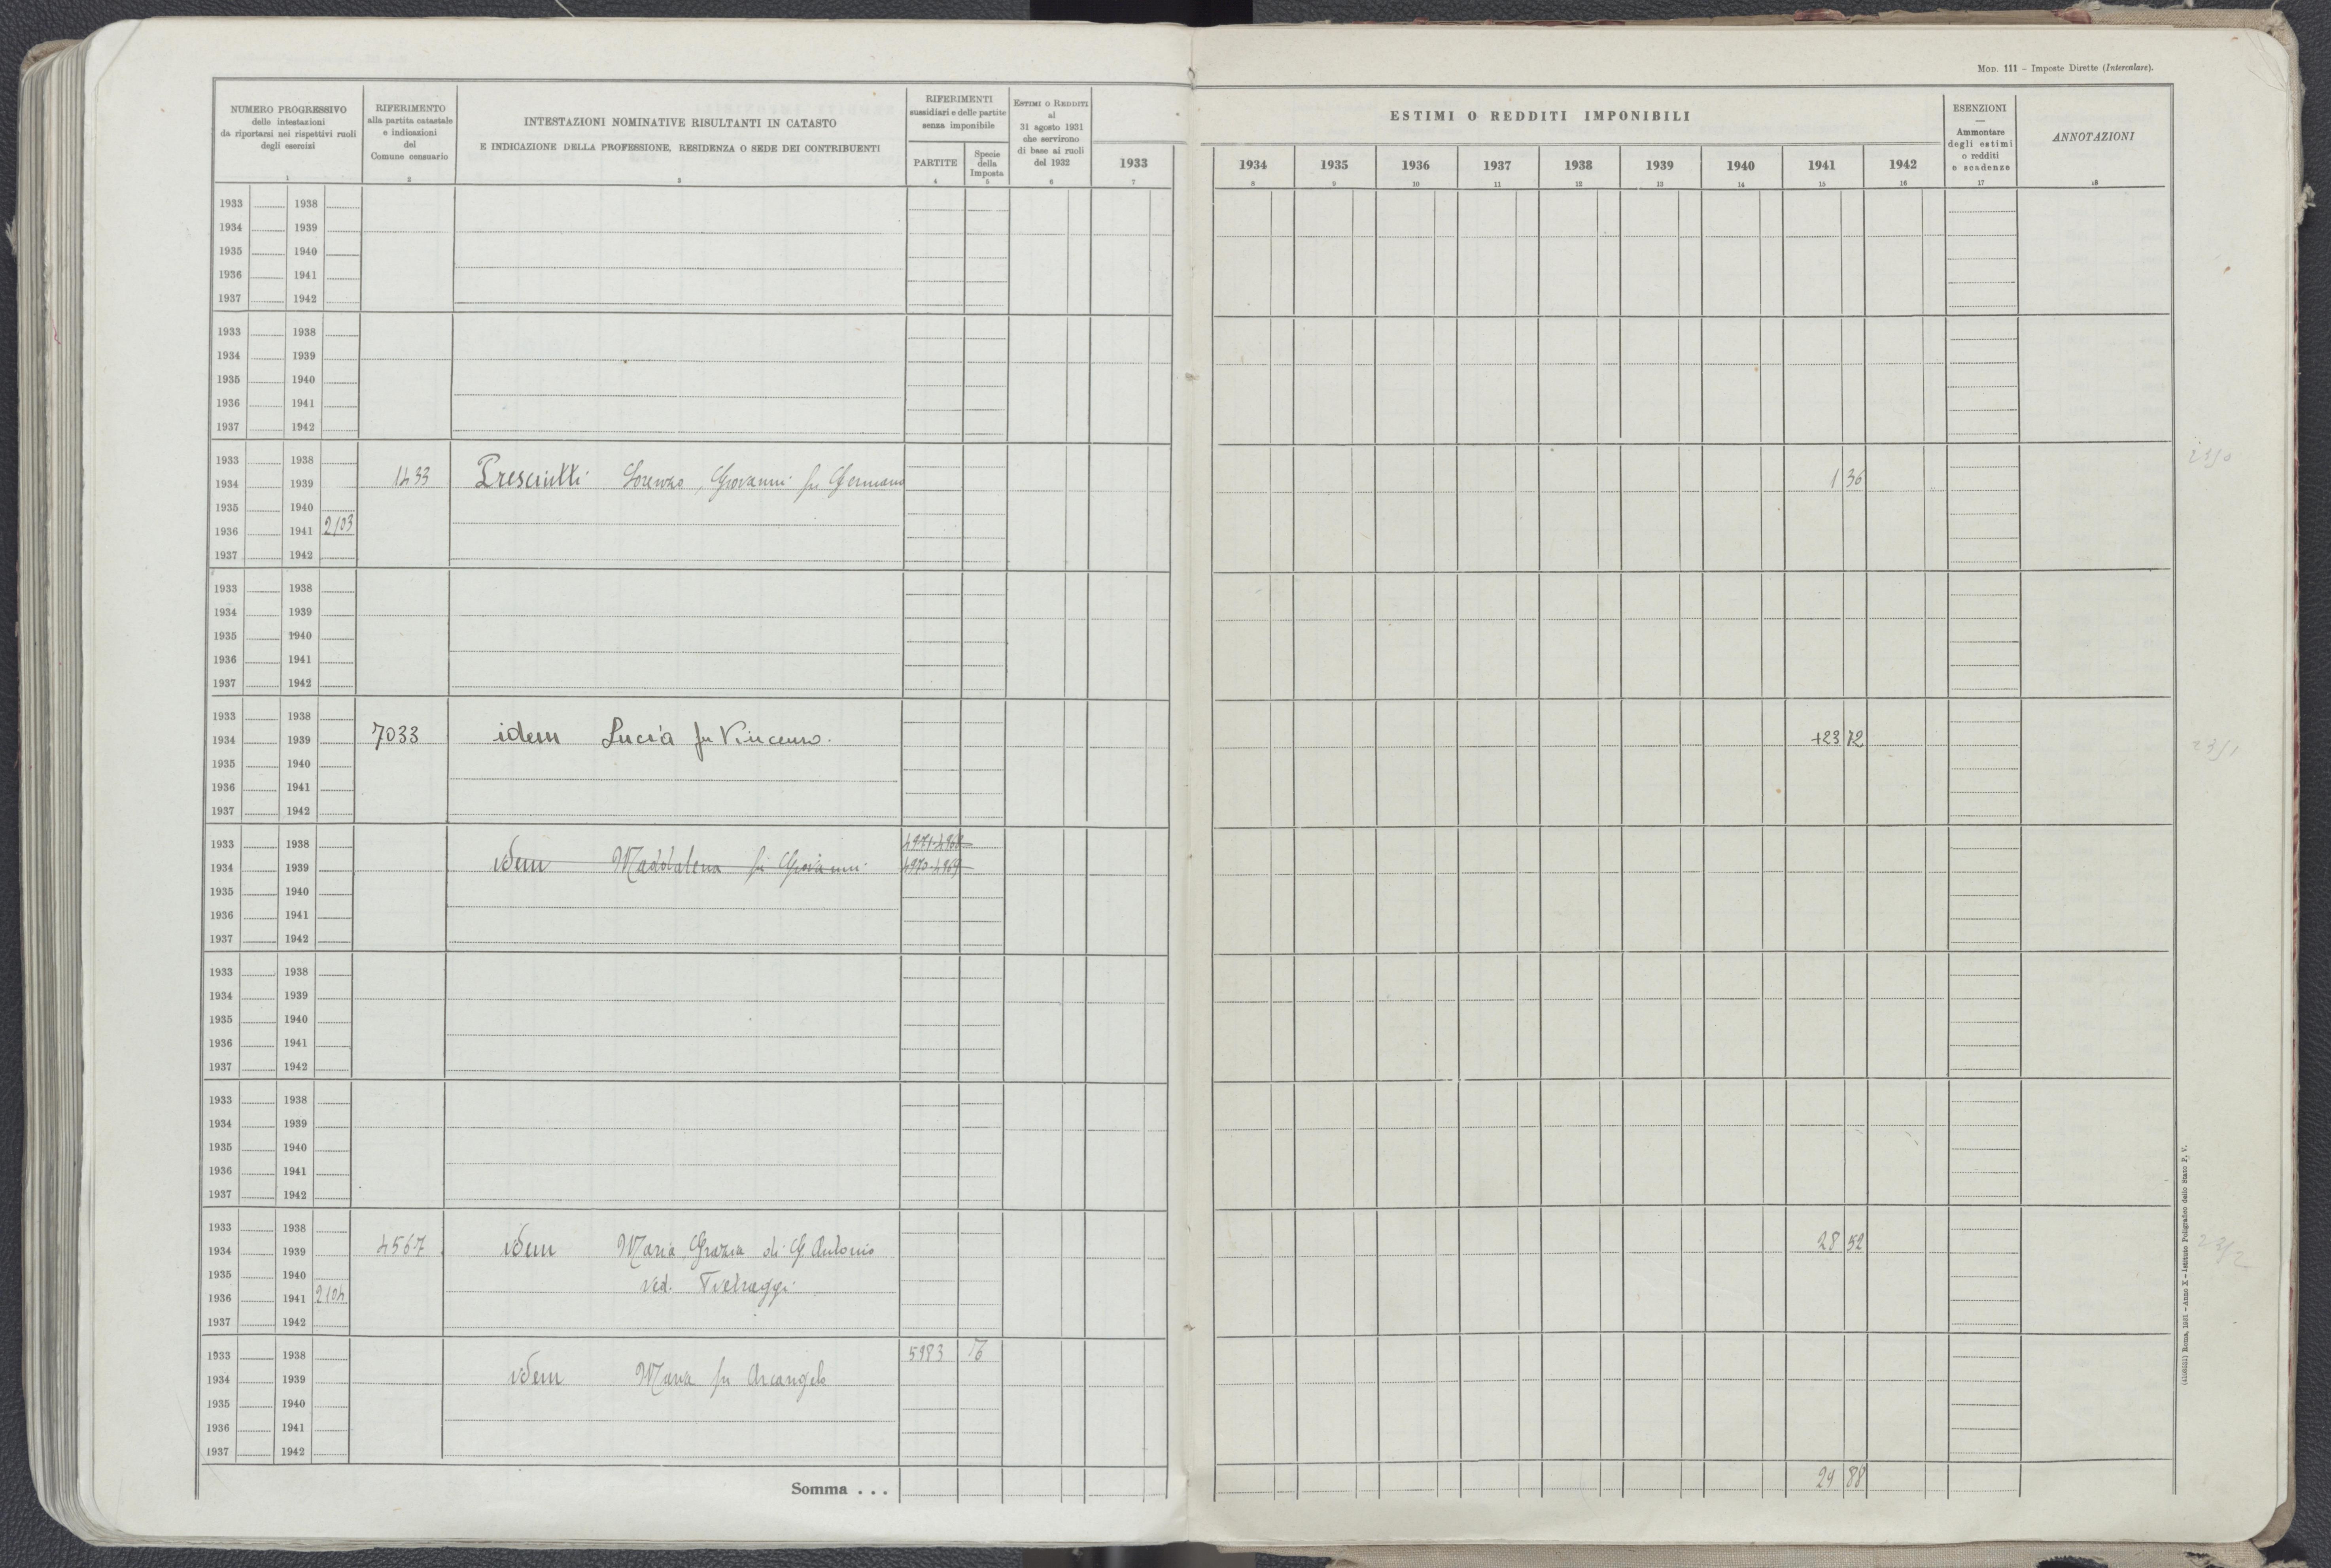 Mod. 111 – Imposte Dirette (Intercalare).
NUMERO PROGRESSIVO
delle intestazioni
da riportarsi nei rispettivi ruoli
degli esercizi
1
RIFERIMENTO
alla partita catastale
e indicazioni
del
Comune censuario
2
INTESTAZIONI NOMINATIVE RISULTANTI IN CATASTO
E INDICAZIONE DELLA PROFESSIONE, RESIDENZA O SEDE DEI CONTRIBUENTI
3
RIFERIMENTI
sussidiari e delle partite
senza imponibile
PARTITE
4
Specie
della
Imposta
5
Estimi o Redditi
al
31 agosto 1931
che servirono
di base ai ruoli
del 1932
6
ESTIMI O REDDITI IMPONIBILI
1933 1934 1935 1936 1937 1938 1939 1940 1941 1942
7 8 9 10 11 12 13 14 15 16
ESENZIONI
—
Ammontare
degli estimi
o redditi
e scadenze
17
ANNOTAZIONI
18
1933 1938
1934 1939
1935 1940
1936 1941
1937 1942
1933 1938
1934 1939
1935 1940
1936 1941
1937 1942
1933 1938
1934 1939 1433 Presciutti Lorenzo, Giovanni fu Germano 1 36
1935 1940
1936 1941 2103
1937 1942
1933 1938
1934 1939
1935 1940
1936 1941
1937 1942
1933 1938
1934 1939 7033 idem Lucia fu Vincenzo. +23 72 23/1
1935 1940
1936 1941
1937 1942
1933 1938 4971-4968
1934 1939 idem Maddalena fu Giovanni 4970-4969
1935 1940
1936 1941
1937 1942
1933 1938
1934 1939
1935 1940
1936 1941
1937 1942
1933 1938
1934 1939
1935 1940
1936 1941
1937 1942
1933 1938
1934 1939 4567 idem Maria Grazia di G. Antonio 28 52 23/2
1935 1940 ved.
1936 1941 2104
1937 1942
1933 1938 5983
1934 1939 idem Maria fu Arcangelo
1935 1940
1936 1941
1937 1942
Somma . . . 29 88
Roma, 1931 – Anno X – Istituto Poligrafico dello Stato P. V.